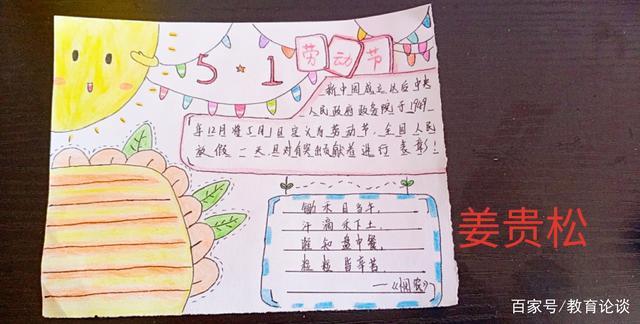 5·1劳动节
新中国成立以后 中央
人民政府政务院于1949
年12月将5月1日定义为劳动节，全国人民
放假一天且对有突出贡献者进行表彰！
锄禾日当午，
汗滴禾下土
谁知盘中餐，
粒粒皆辛苦。
——《悯农》
姜贵松
百家号/教育论谈